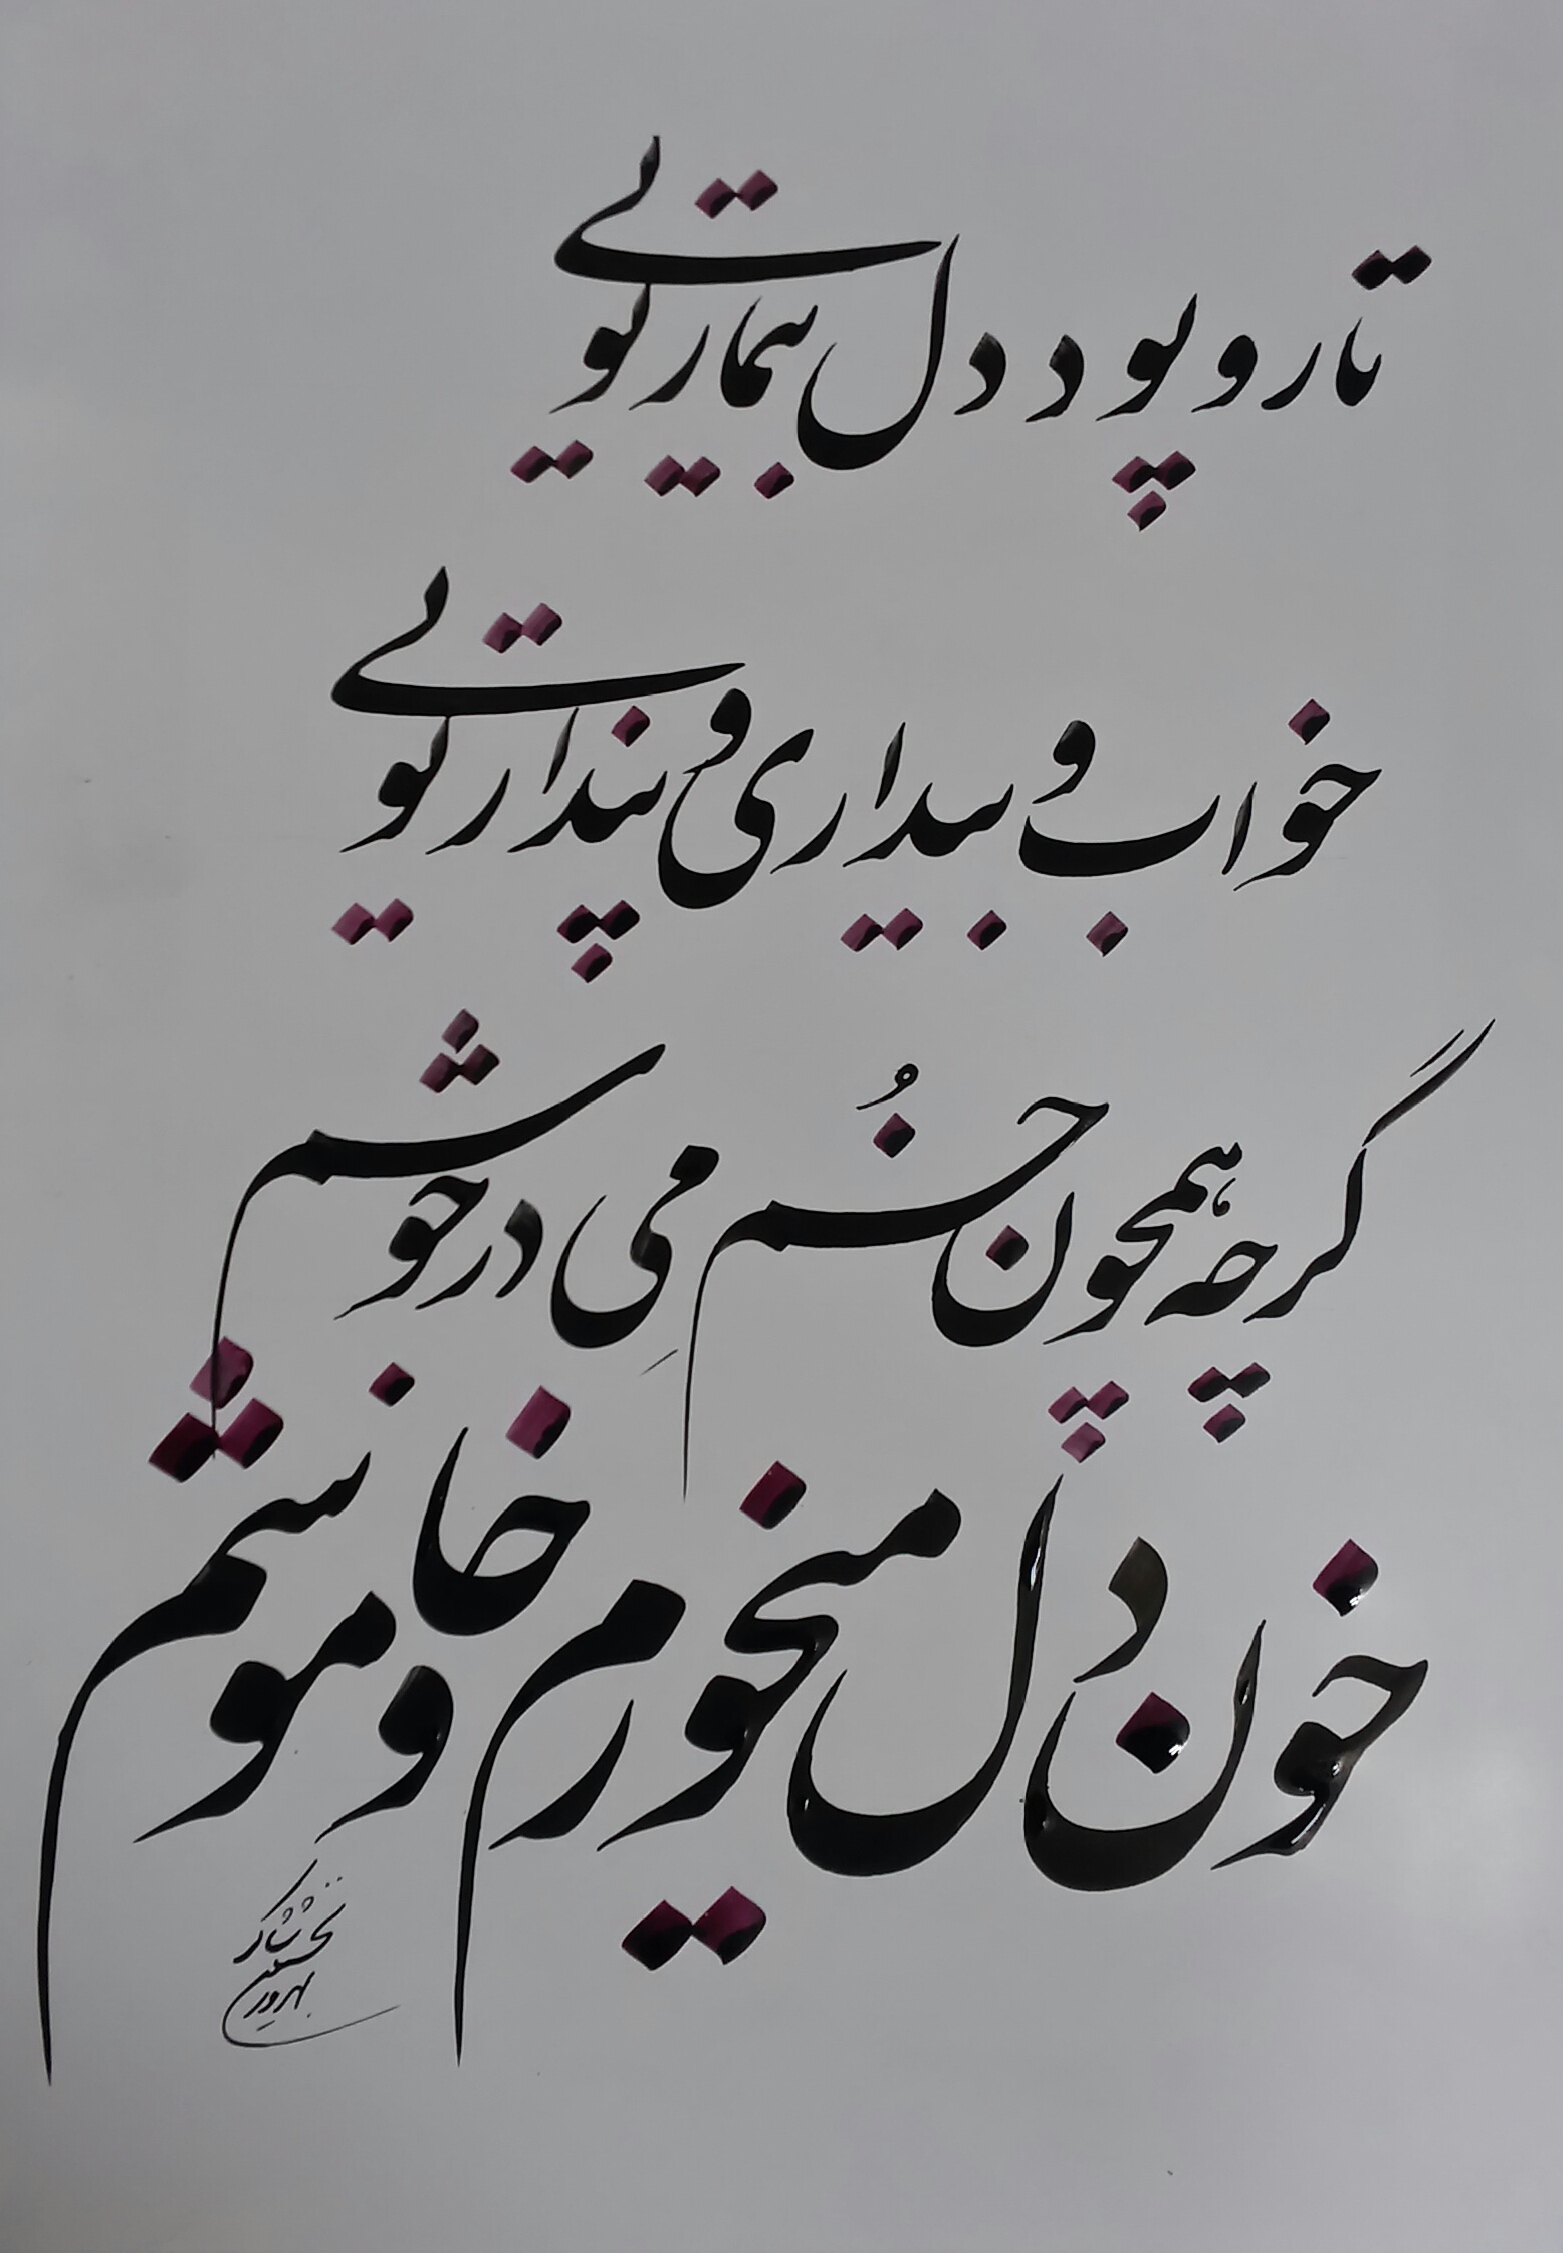 تار و پود دل بیمار تویی
خواب و بیداری و پندار تویی
گرچه همچون خُمِ می در جوشم
خون دل میخورم و خاموشم